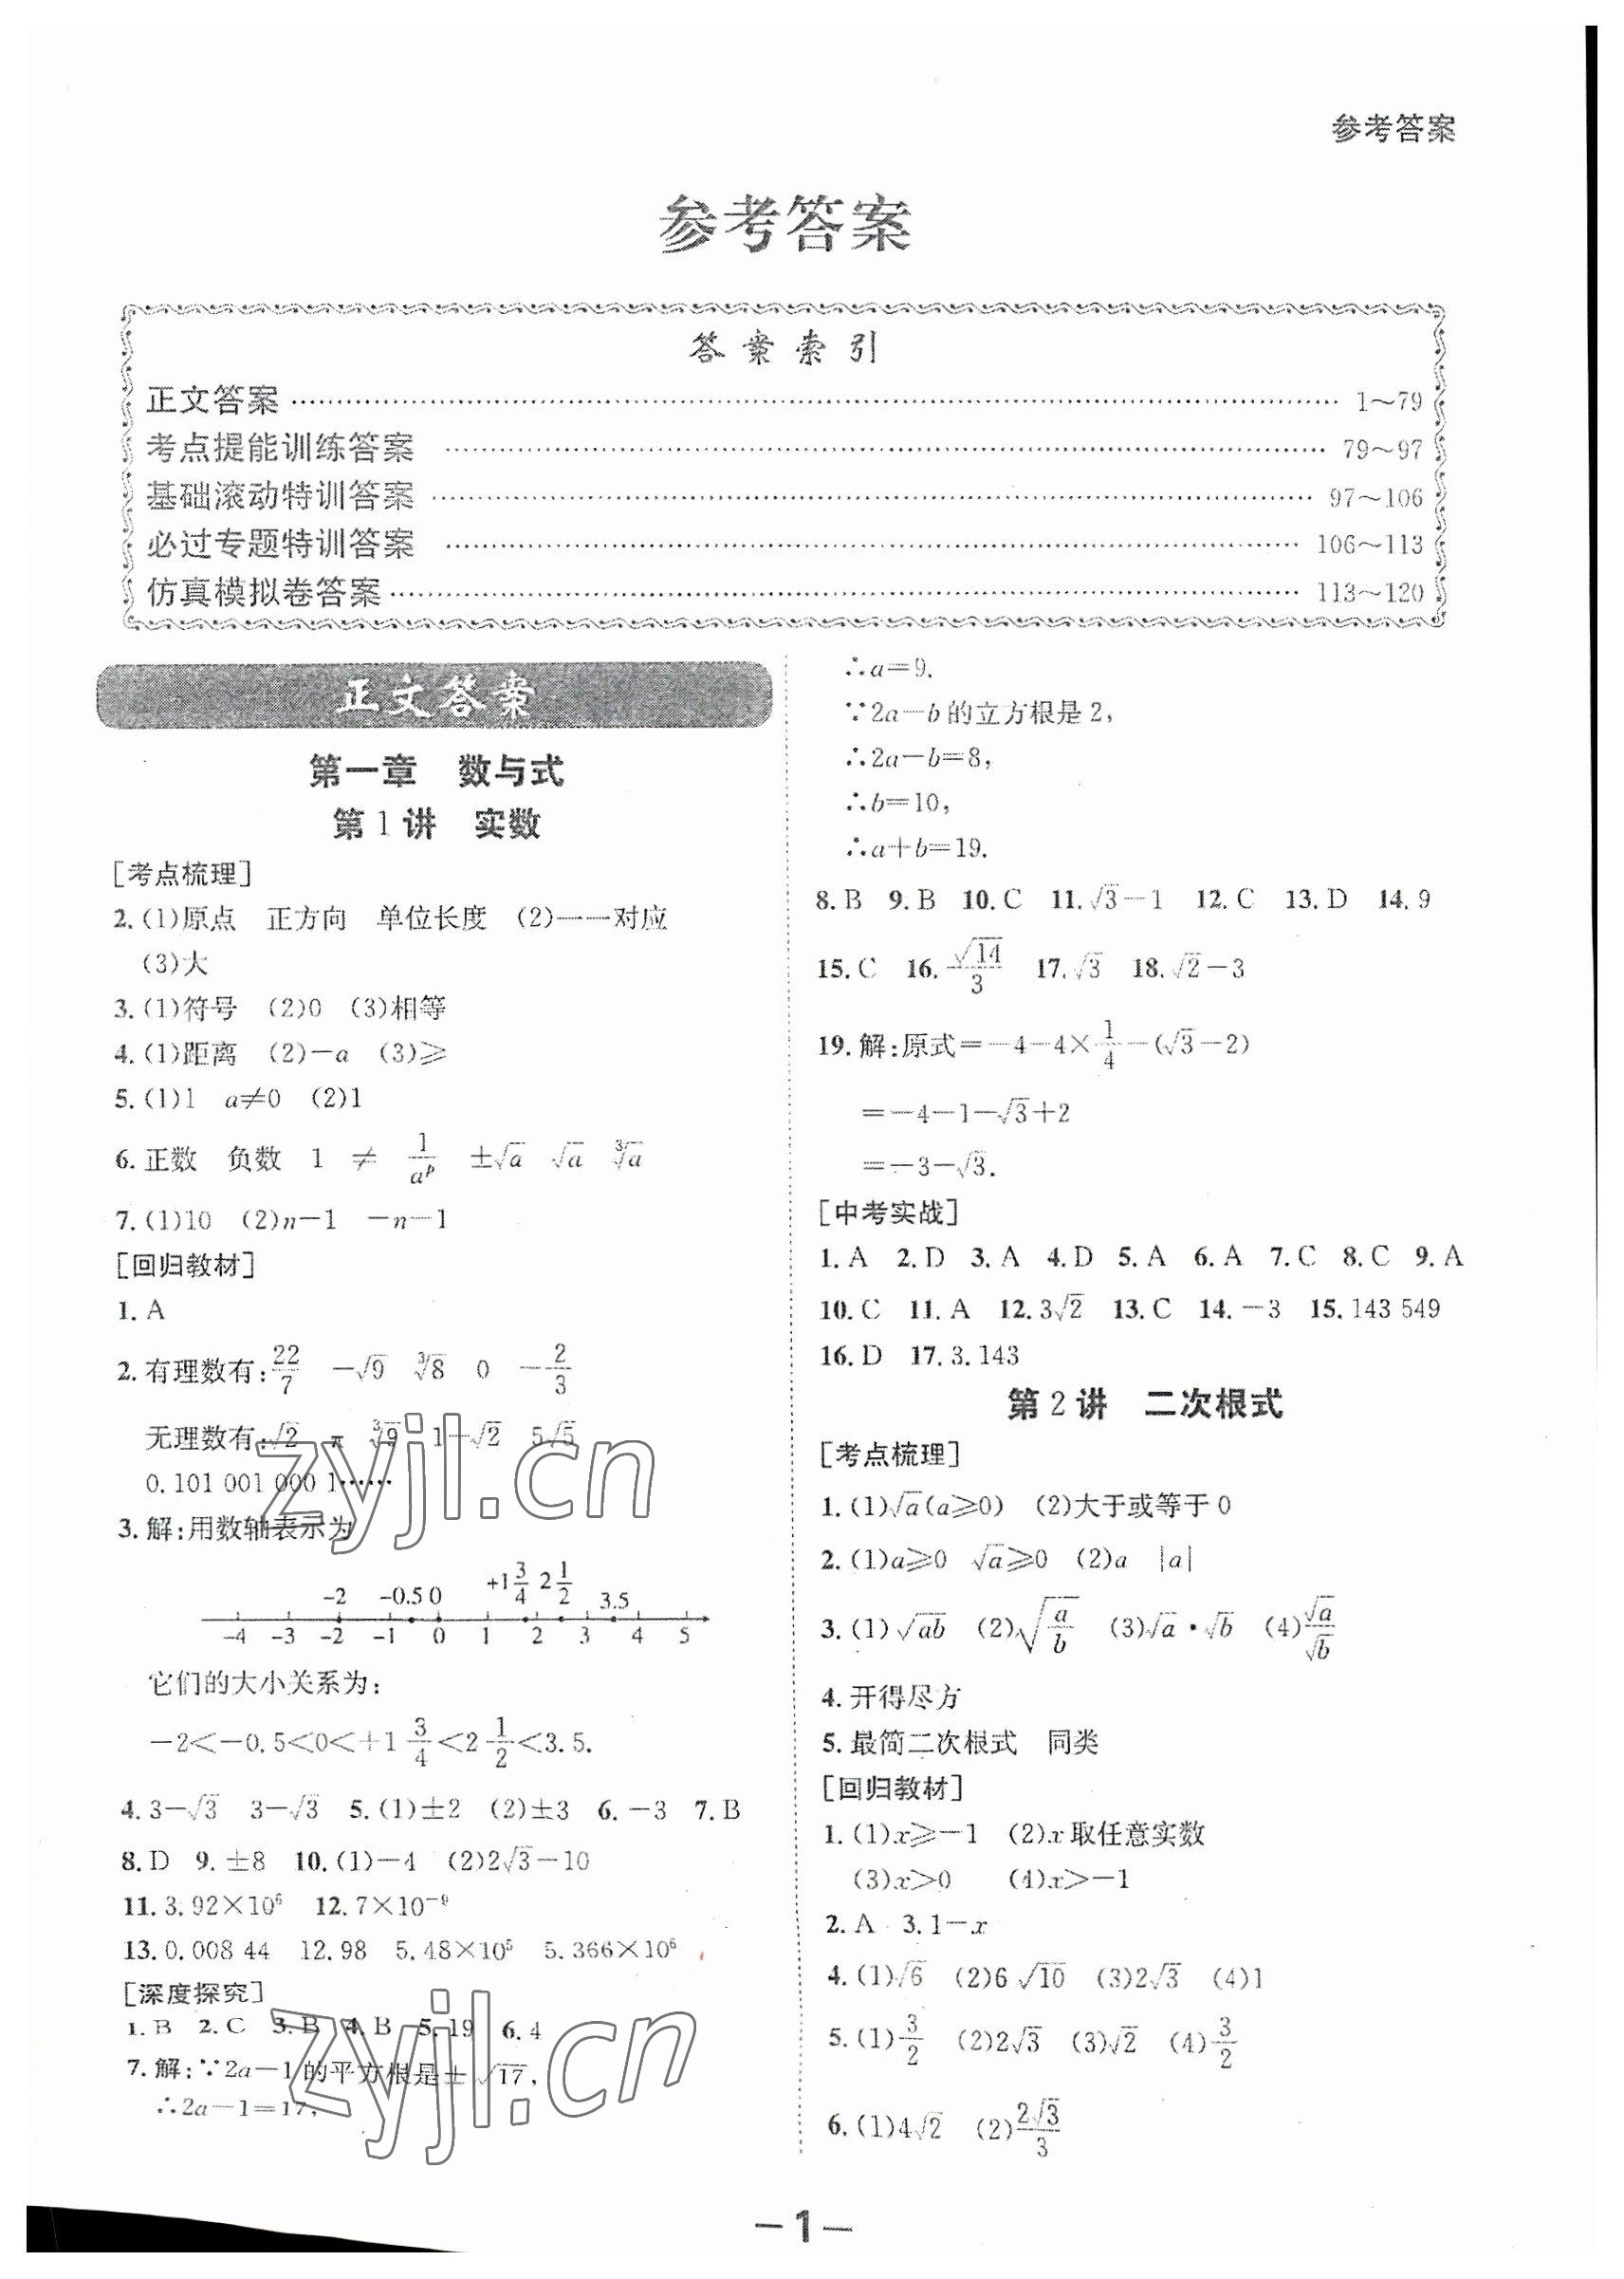 参考答案
参考答案
答案索引
正文答案 …… 1～79
考点提能训练答案 …… 79～97
基础滚动特训答案 …… 97～106
必过专题特训答案 …… 106～113
仿真模拟卷答案 …… 113～120
正文答案
第一章 数与式
第1讲 实数
[考点梳理]
2.(1)原点 正方向 单位长度 (2)一一对应
(3)大
3.(1)符号 (2)0 (3)相等
4.(1)距离 (2)－a (3)≥
5.(1)1 a≠0 (2)1
6.正数 负数 1 ≠ 1/a^p ±√a √a ∛a
7.(1)10 (2)n－1 －n－1
[回归教材]
1. A
2.有理数有:22/7 －√9 ∛8 0 －2/3
无理数有:√2 π ∛9 1－√2 5√5
0.101 001 000 1……
3.解:用数轴表示为
－2 －0.5 0 +1 3/4 2 1/2 3.5
－4 －3 －2 －1 0 1 2 3 4 5
它们的大小关系为:
－2＜－0.5＜0＜＋1 3/4＜2 1/2＜3.5.
4. 3－√3 3－√3 5.(1)±2 (2)±3 6.－3 7. B
8. D 9.±8 10.(1)－4 (2)2√3－10
11. 3.92×10⁶ 12. 7×10⁻⁹
13. 0.008 44 12.98 5.48×10⁵ 5.366×10⁶
[深度探究]
1. B 2. C 3. B 4. B 5. 19 6. 4
7.解:∵2a－1的平方根是±√17,
∴2a－1＝17,
∴a＝9.
∵2a－b的立方根是2,
∴2a－b＝8,
∴b＝10,
∴a＋b＝19.
8. B 9. B 10. C 11.√3－1 12. C 13. D 14. 9
15. C 16. √14/3 17.√3 18.√2－3
19.解:原式＝－4－4×1/4－(√3－2)
＝－4－1－√3＋2
＝－3－√3.
[中考实战]
1. A 2. D 3. A 4. D 5. A 6. A 7. C 8. C 9. A
10. C 11. A 12. 3√2 13. C 14.－3 15. 143 549
16. D 17. 3.143
第2讲 二次根式
[考点梳理]
1.(1)√a(a≥0) (2)大于或等于0
2.(1)a≥0 √a≥0 (2)a |a|
3.(1)√ab (2)√(a/b) (3)√a·√b (4)√a/√b
4.开得尽方
5.最简二次根式 同类
[回归教材]
1.(1)x≥－1 (2)x取任意实数
(3)x＞0 (4)x＞－1
2. A 3. 1－x
4.(1)√6 (2)6√10 (3)2√3 (4)1
5.(1)3/2 (2)2√3 (3)√2 (4)3/2
6.(1)4√2 (2)2√3/3
－1－
zyjl.cn
zyjl.cn